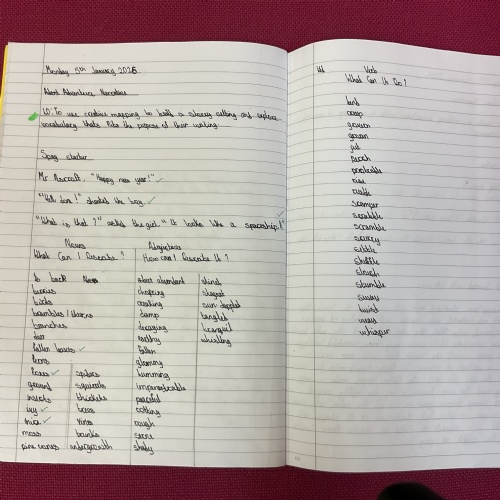 Monday 5th January 2026
Adventure Narratives
LO: To use creative mapping to build a setting and explore
vocabulary that fits the purpose of their writing.
Spag starter
Mr Ashcroft, "Happy new year!"
"Well done!" shouted the boy.
"What is that?" asked the girl. "It looks like a spaceship!"
Nouns
Adjectives
What Can I Describe?
How can I Describe It?
bark
berries
birds
brambles / thorns
branches
deer
fallen leaves
ferns
foxes
ground
insects
ivy
mice
moss
pine cones
spiders
squirrels
thickets
trees
vines
trunks
undergrowth
abundant
chirping
creaking
damp
decaying
earthy
fallen
gloomy
humming
impenetrable
peaceful
rotting
rough
serene
shady
sun dappled
tangled
tranquil
whistling
Verb
What Can It Do?
bend
creep
govern
grown
jut
perch
protrude
rise
rustle
scamper
scrabble
scramble
scurry
settle
shuffle
slouch
stumble
sway
twist
weave
whisper